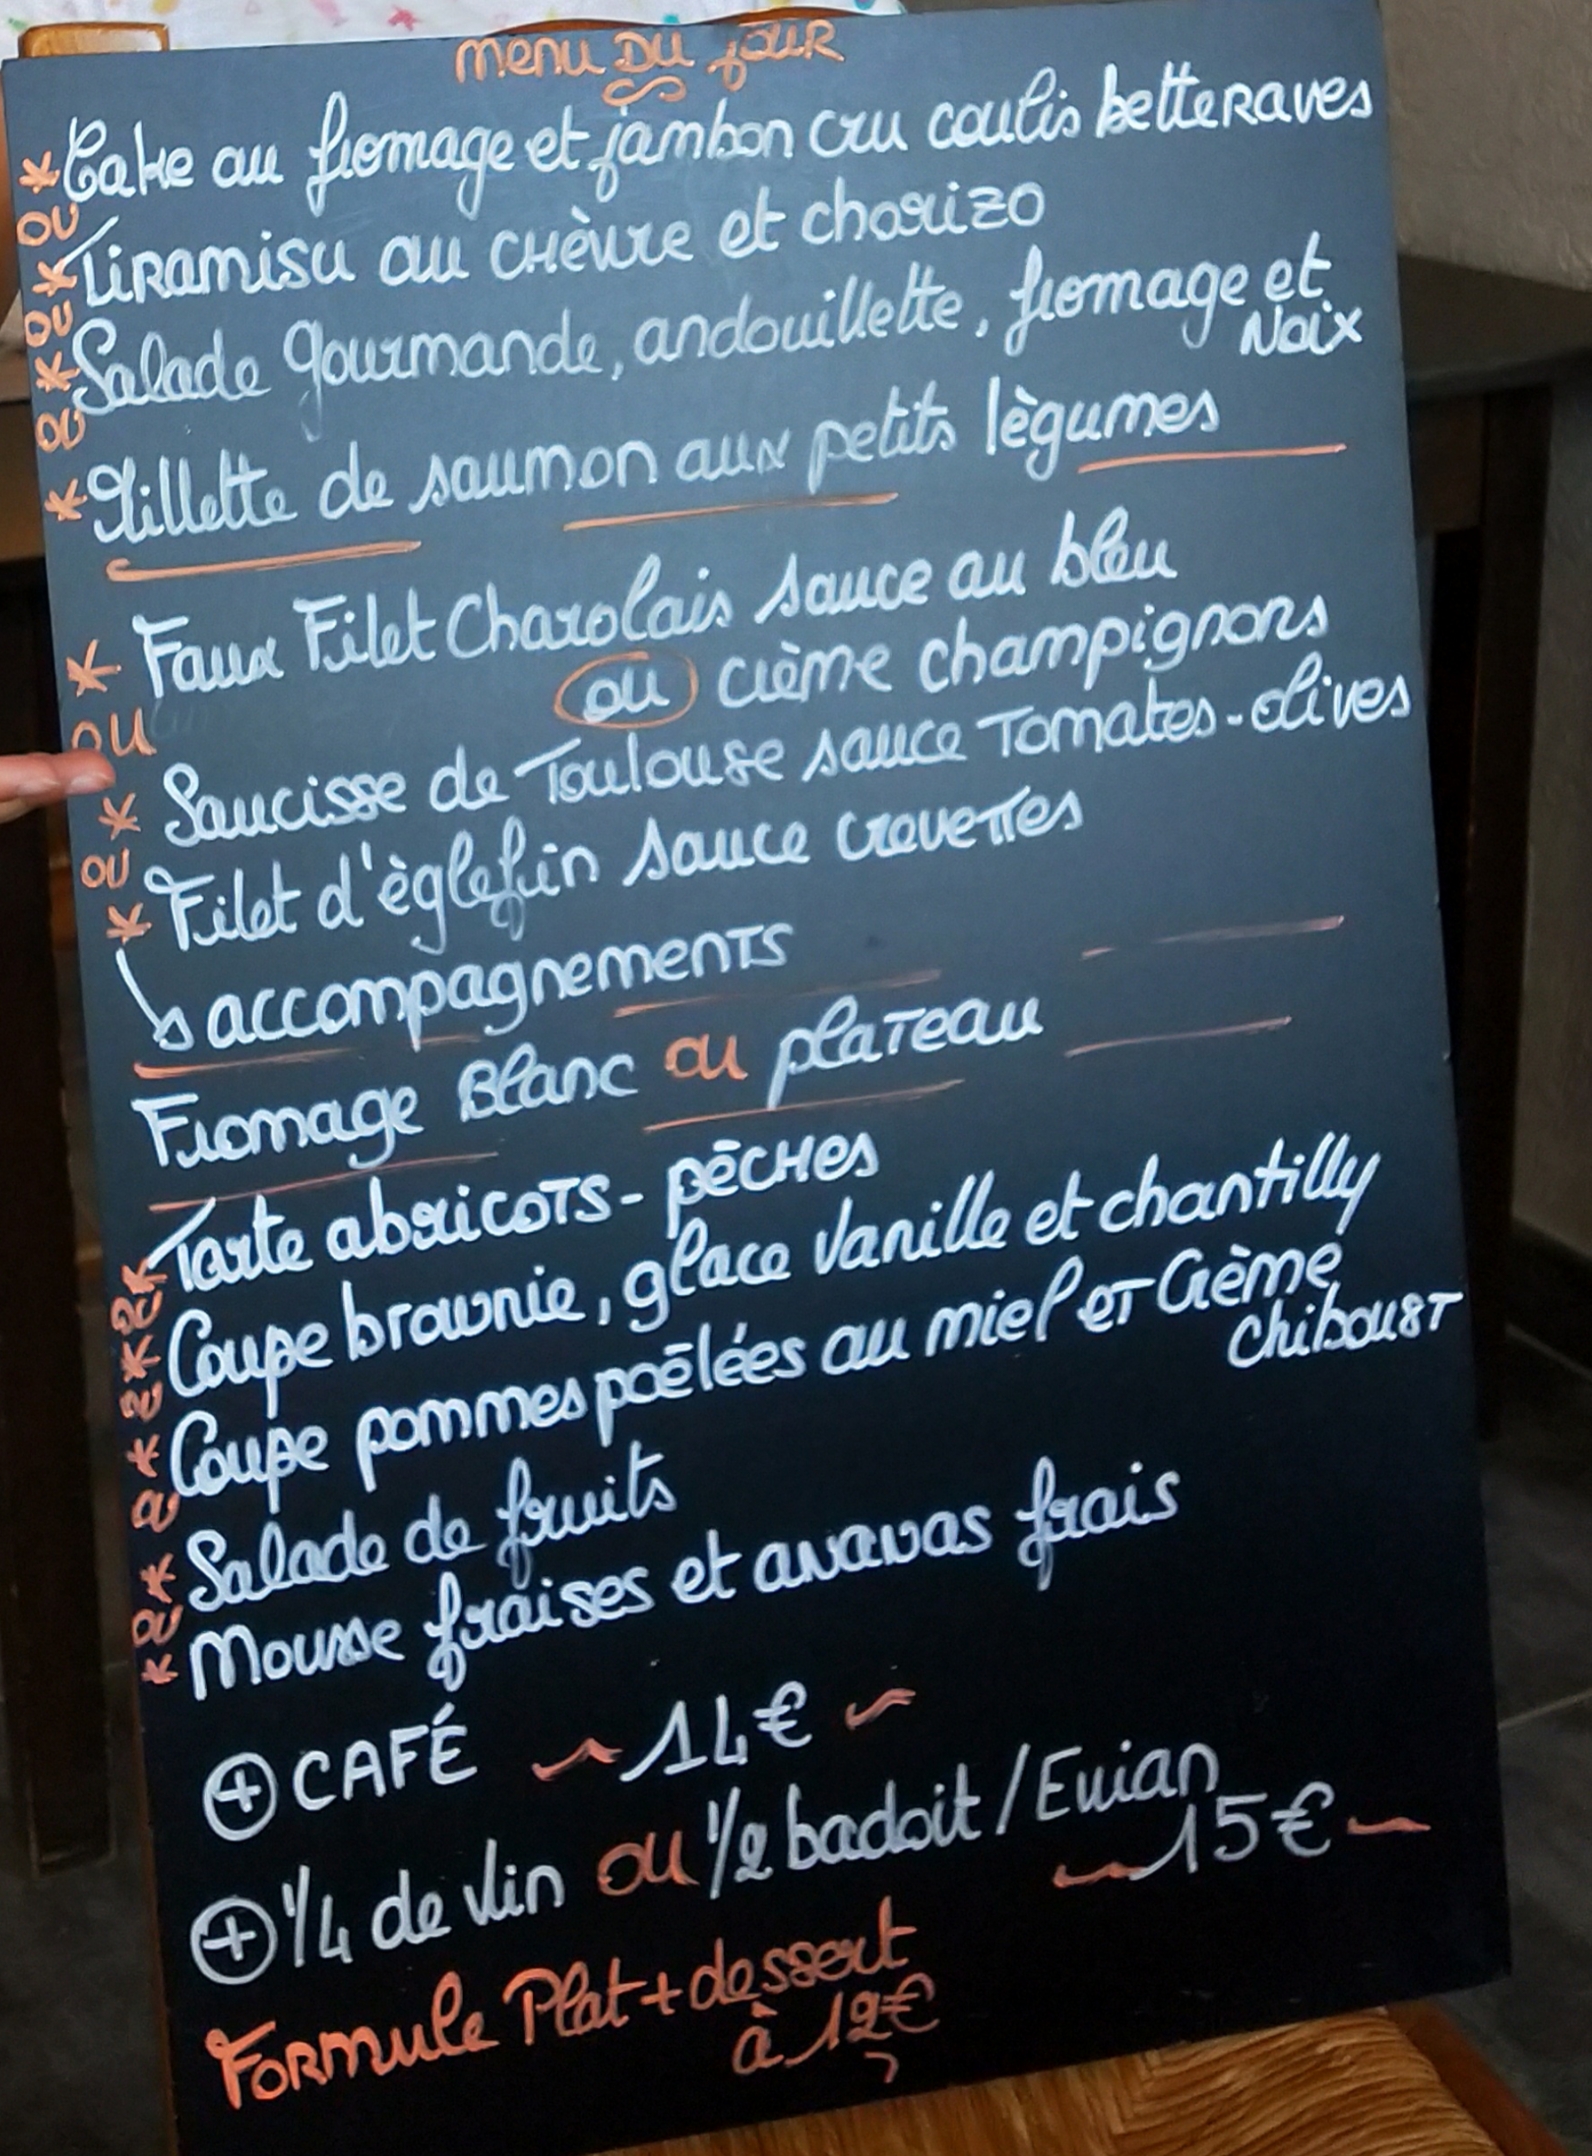 menu DU jOUR
* Cake au fromage et jambon cru coulis betteraves
ou
* Tiramisu au chèvre et chorizo
ou
* Salade gourmande, andouillette, fromage et
Noix
ou
* Rillette de saumon aux petits lègumes
* Faux Filet Charolais sauce au bleu
ou crème champignons
ou
* Saucisse de Toulouse sauce Tomates-olives
ou
* Filet d'èglefin sauce crevettes
↳ accompagnements
Fromage Blanc ou plateau
* Tarte abricots - pêches
ou
* Coupe brownie, glace vanille et chantilly
ou
* Coupe pommes poêlées au miel et Crème
Chiboust
ou
* Salade de fruits
ou
* Mousse fraises et ananas frais
+ CAFÉ ~ 14€ ~
+ 1/4 de vin ou 1/2 badoit / Evian
~ 15€ ~
Formule Plat + dessert
à 12€